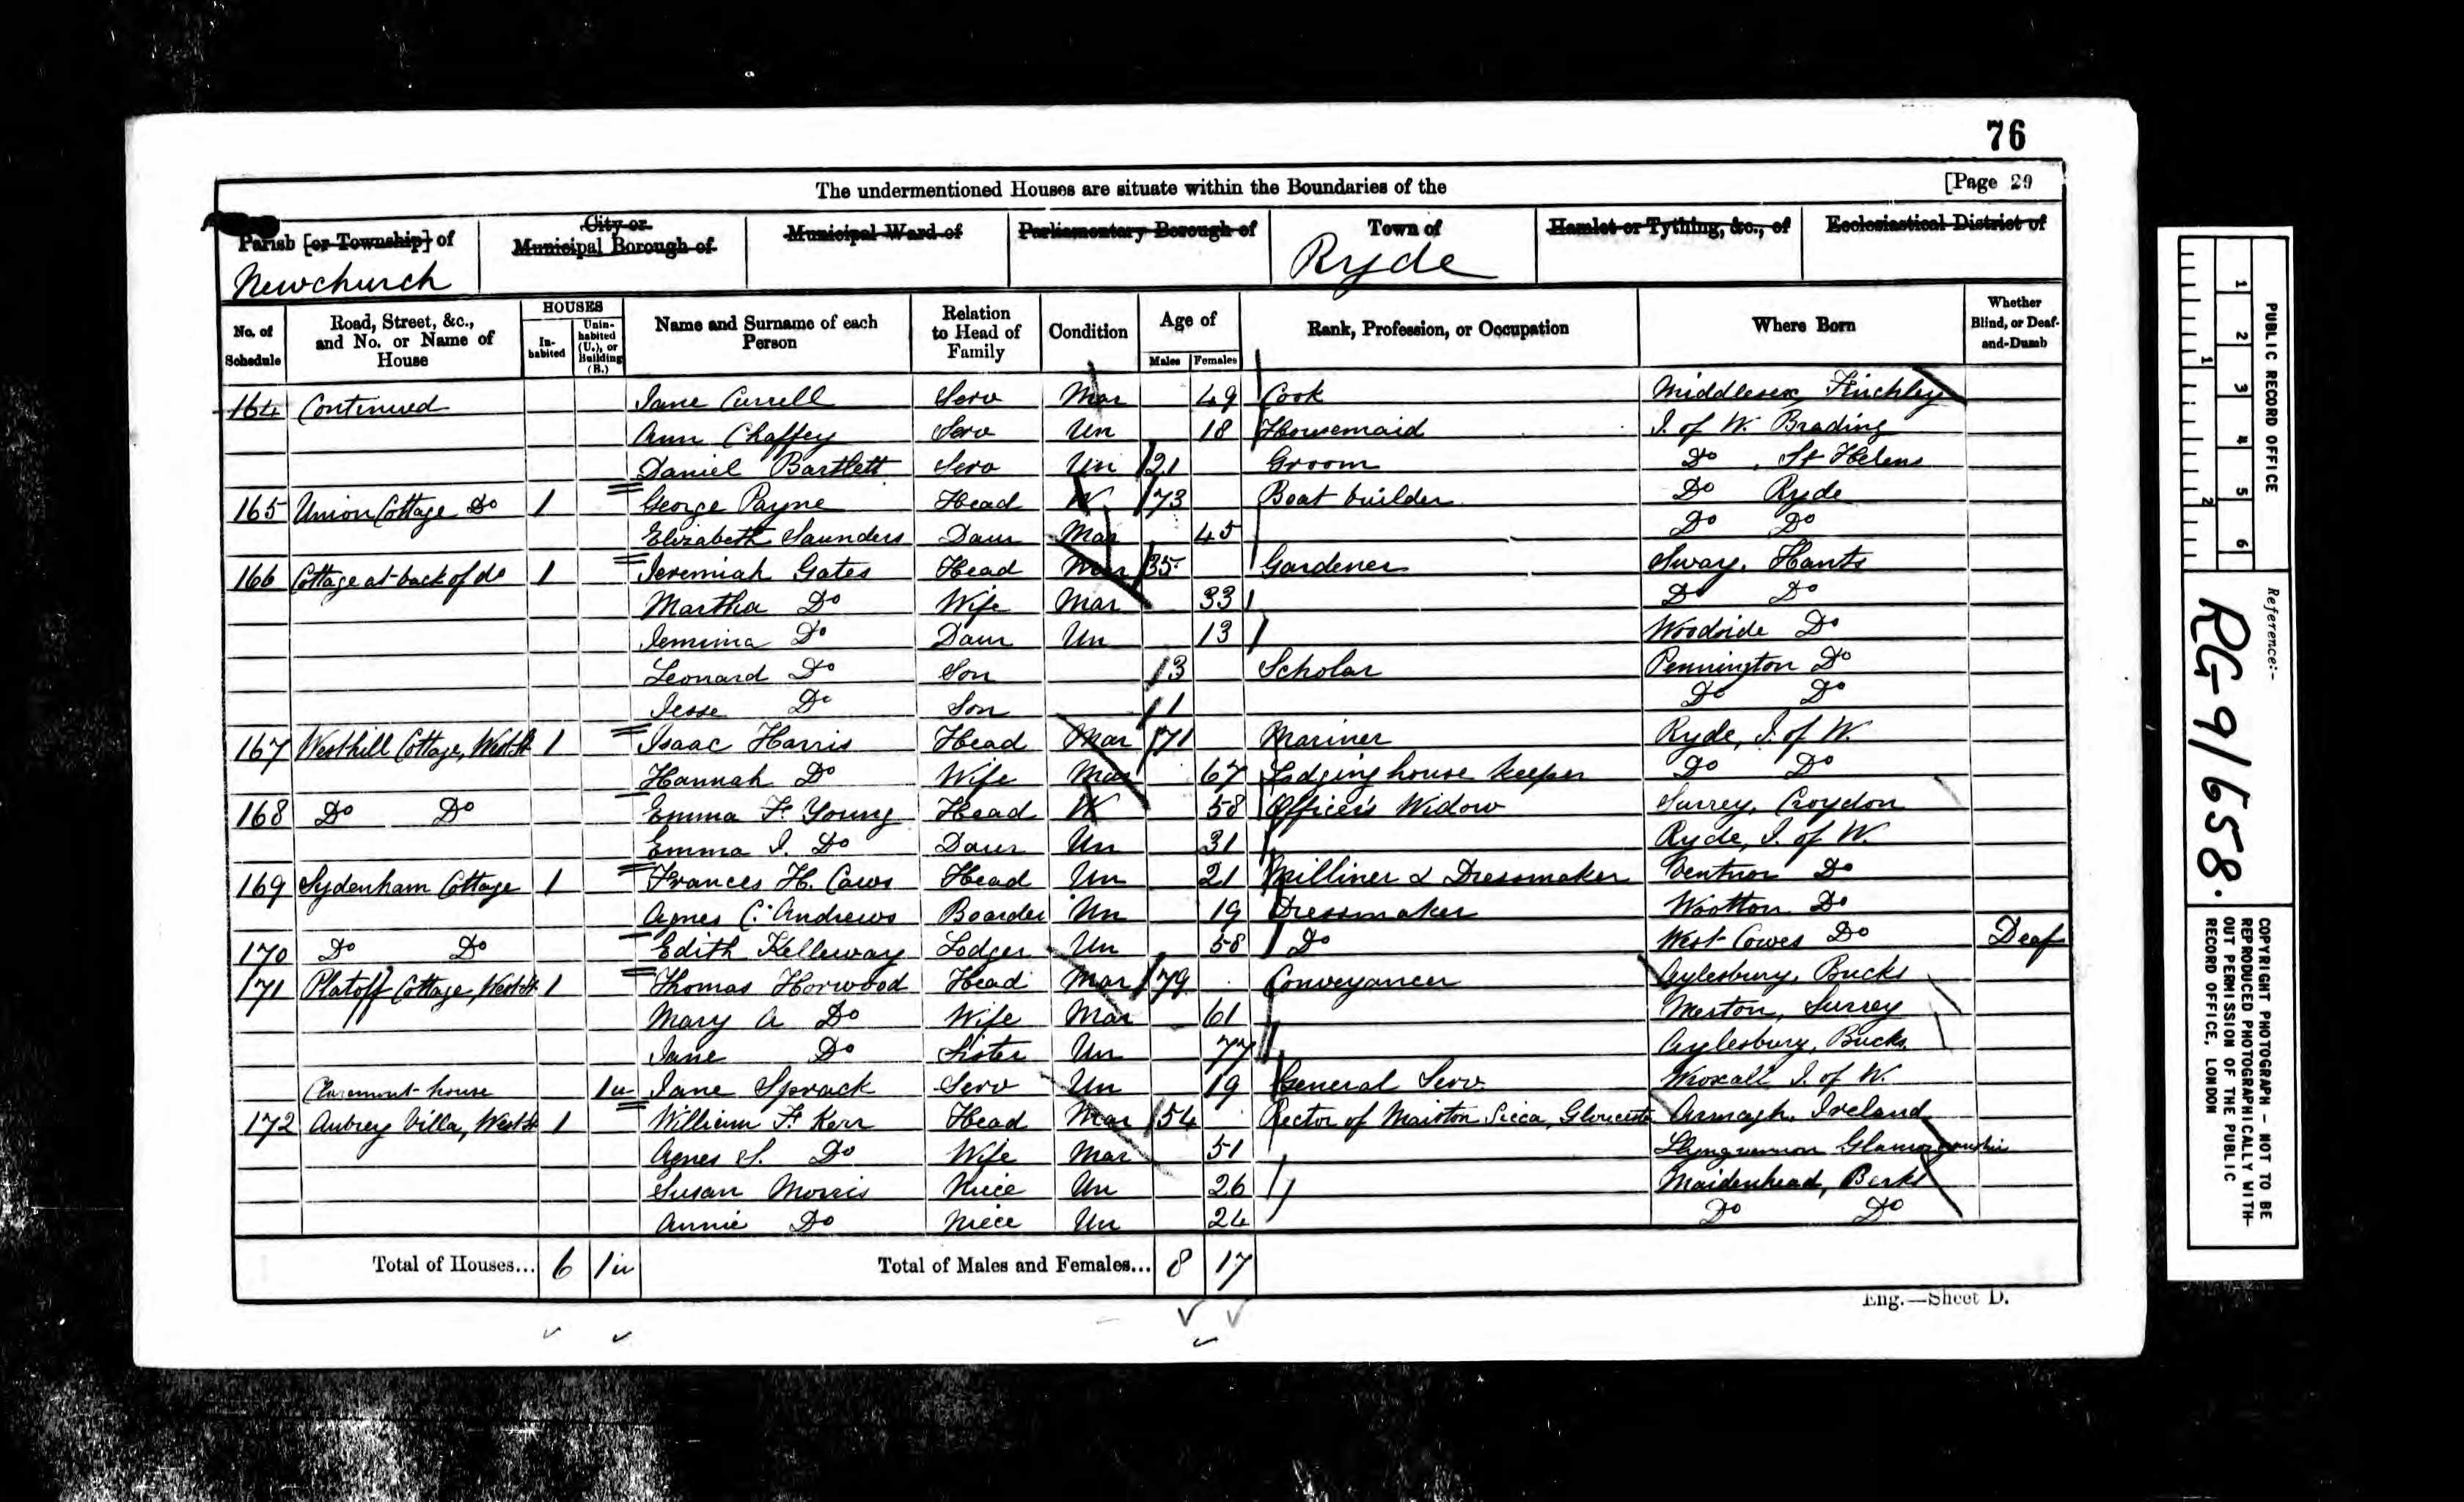 76
The undermentioned Houses are situate within the Boundaries of the [Page 29
Parish [or Township] of City or Municipal Borough of Municipal Ward of Parliamentary Borough of Town of Hamlet or Tything, &c., of Ecclesiastical District of
Newchurch Ryde
No. of Schedule Road, Street, &c., and No. or Name of House HOUSES Inhabited Uninhabited (U.), or Building (B.) Name and Surname of each Person Relation to Head of Family Condition Age of Males Females Rank, Profession, or Occupation Where Born Whether Blind, or Deaf-and-Dumb
164 Continued Jane Currell Serv Mar 49 Cook Middlesex Finchley
Ann Chaffey Serv Un 18 Housemaid I. of W. Brading
Daniel Bartlett Serv Un 21 Groom Do St Helens
165 Union Cottage Do 1 George Payne Head W 73 Boat builder Do Ryde
Elizabeth Saunders Daur Mar 45 Do Do
166 Cottage at back of do 1 Jeremiah Gates Head Mar 35 Gardener Sway, Hants
Martha Do Wife Mar 33 Do Do
Jemima Do Daur Un 13 Woodside Do
Leonard Do Son 3 Scholar Pennington Do
Jesse Do Son 1 Do Do
167 Westhill Cottage, West St 1 Isaac Harris Head Mar 71 Mariner Ryde, I. of W.
Hannah Do Wife Mar 67 Lodging house keeper Do Do
168 Do Do Emma F. Young Head W 58 Officer's Widow Surrey, Croydon
Emma I. Do Daur Un 31 Ryde, I. of W.
169 Sydenham Cottage 1 Frances H. Caws Head Un 21 Milliner & Dressmaker Ventnor Do
Agnes C. Andrews Boarder Un 19 Dressmaker Wootton Do
170 Do Do Edith Kelleway Lodger Un 58 Do West Cowes Do Deaf
171 Platoff Cottage, West St 1 Thomas Horwood Head Mar 79 Conveyancer Aylesbury, Bucks
Mary A Do Wife Mar 61 Merton, Surrey
Jane Do Sister Un 77 Aylesbury, Bucks
Claremont house 1u Jane Sprack Serv Un 19 General Serv. Wroxall I. of W.
172 Aubrey Villa, West St 1 William F. Kerr Head Mar 54 Rector of Marston Sicca, Glouceste Armagh, Ireland
Agnes S. Do Wife Mar 51 Glamorganshire
Susan Morris Niece Un 26 Maidenhead, Berks
Annie Do Niece Un 24 Do Do
Total of Houses... 6 1u Total of Males and Females... 8 17
Eng.—Sheet D.
PUBLIC RECORD OFFICE
1 2 3 4 5 6
1 2
Reference:-
RG 9/658.
COPYRIGHT PHOTOGRAPH - NOT TO BE
REPRODUCED PHOTOGRAPHICALLY WITH-
OUT PERMISSION OF THE PUBLIC
RECORD OFFICE, LONDON